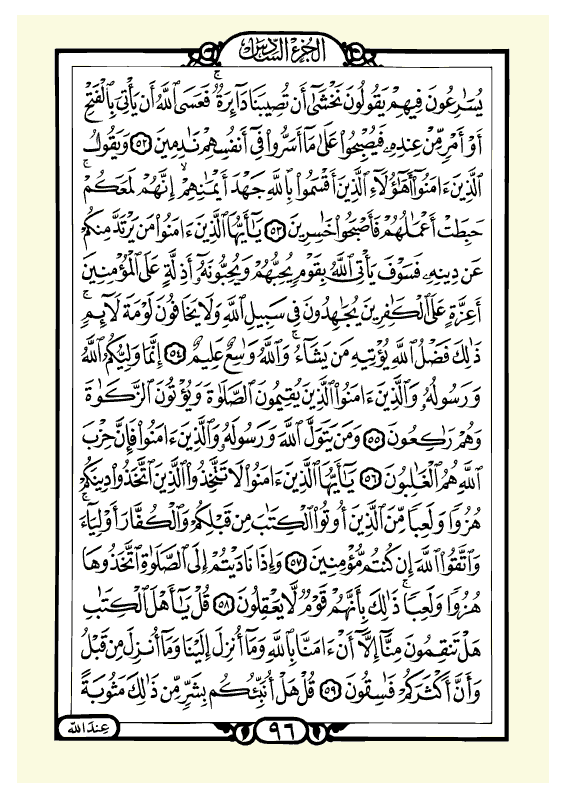 الجزء السادس
يُسَٰرِعُونَ فِيهِمْ يَقُولُونَ نَخْشَىٰٓ أَن تُصِيبَنَا دَآئِرَةٌ ۚ فَعَسَى ٱللَّهُ أَن يَأْتِىَ بِٱلْفَتْحِ
أَوْ أَمْرٍ مِّنْ عِندِهِۦ فَيُصْبِحُوا۟ عَلَىٰ مَآ أَسَرُّوا۟ فِىٓ أَنفُسِهِمْ نَٰدِمِينَ ٥٢ وَيَقُولُ
ٱلَّذِينَ ءَامَنُوٓا۟ أَهَٰٓؤُلَآءِ ٱلَّذِينَ أَقْسَمُوا۟ بِٱللَّهِ جَهْدَ أَيْمَٰنِهِمْ ۙ إِنَّهُمْ لَمَعَكُمْ ۚ
حَبِطَتْ أَعْمَٰلُهُمْ فَأَصْبَحُوا۟ خَٰسِرِينَ ٥٣ يَٰٓأَيُّهَا ٱلَّذِينَ ءَامَنُوا۟ مَن يَرْتَدَّ مِنكُمْ
عَن دِينِهِۦ فَسَوْفَ يَأْتِى ٱللَّهُ بِقَوْمٍ يُحِبُّهُمْ وَيُحِبُّونَهُۥٓ أَذِلَّةٍ عَلَى ٱلْمُؤْمِنِينَ
أَعِزَّةٍ عَلَى ٱلْكَٰفِرِينَ يُجَٰهِدُونَ فِى سَبِيلِ ٱللَّهِ وَلَا يَخَافُونَ لَوْمَةَ لَآئِمٍ ۚ
ذَٰلِكَ فَضْلُ ٱللَّهِ يُؤْتِيهِ مَن يَشَآءُ ۚ وَٱللَّهُ وَٰسِعٌ عَلِيمٌ ٥٤ إِنَّمَا وَلِيُّكُمُ ٱللَّهُ
وَرَسُولُهُۥ وَٱلَّذِينَ ءَامَنُوا۟ ٱلَّذِينَ يُقِيمُونَ ٱلصَّلَوٰةَ وَيُؤْتُونَ ٱلزَّكَوٰةَ
وَهُمْ رَٰكِعُونَ ٥٥ وَمَن يَتَوَلَّ ٱللَّهَ وَرَسُولَهُۥ وَٱلَّذِينَ ءَامَنُوا۟ فَإِنَّ حِزْبَ
ٱللَّهِ هُمُ ٱلْغَٰلِبُونَ ٥٦ يَٰٓأَيُّهَا ٱلَّذِينَ ءَامَنُوا۟ لَا تَتَّخِذُوا۟ ٱلَّذِينَ ٱتَّخَذُوا۟ دِينَكُمْ
هُزُوًا وَلَعِبًا مِّنَ ٱلَّذِينَ أُوتُوا۟ ٱلْكِتَٰبَ مِن قَبْلِكُمْ وَٱلْكُفَّارَ أَوْلِيَآءَ ۚ
وَٱتَّقُوا۟ ٱللَّهَ إِن كُنتُم مُّؤْمِنِينَ ٥٧ وَإِذَا نَادَيْتُمْ إِلَى ٱلصَّلَوٰةِ ٱتَّخَذُوهَا
هُزُوًا وَلَعِبًا ۚ ذَٰلِكَ بِأَنَّهُمْ قَوْمٌ لَّا يَعْقِلُونَ ٥٨ قُلْ يَٰٓأَهْلَ ٱلْكِتَٰبِ
هَلْ تَنقِمُونَ مِنَّآ إِلَّآ أَنْ ءَامَنَّا بِٱللَّهِ وَمَآ أُنزِلَ إِلَيْنَا وَمَآ أُنزِلَ مِن قَبْلُ
وَأَنَّ أَكْثَرَكُمْ فَٰسِقُونَ ٥٩ قُلْ هَلْ أُنَبِّئُكُم بِشَرٍّ مِّن ذَٰلِكَ مَثُوبَةً
عِندَ ٱللَّهِ
٩٦